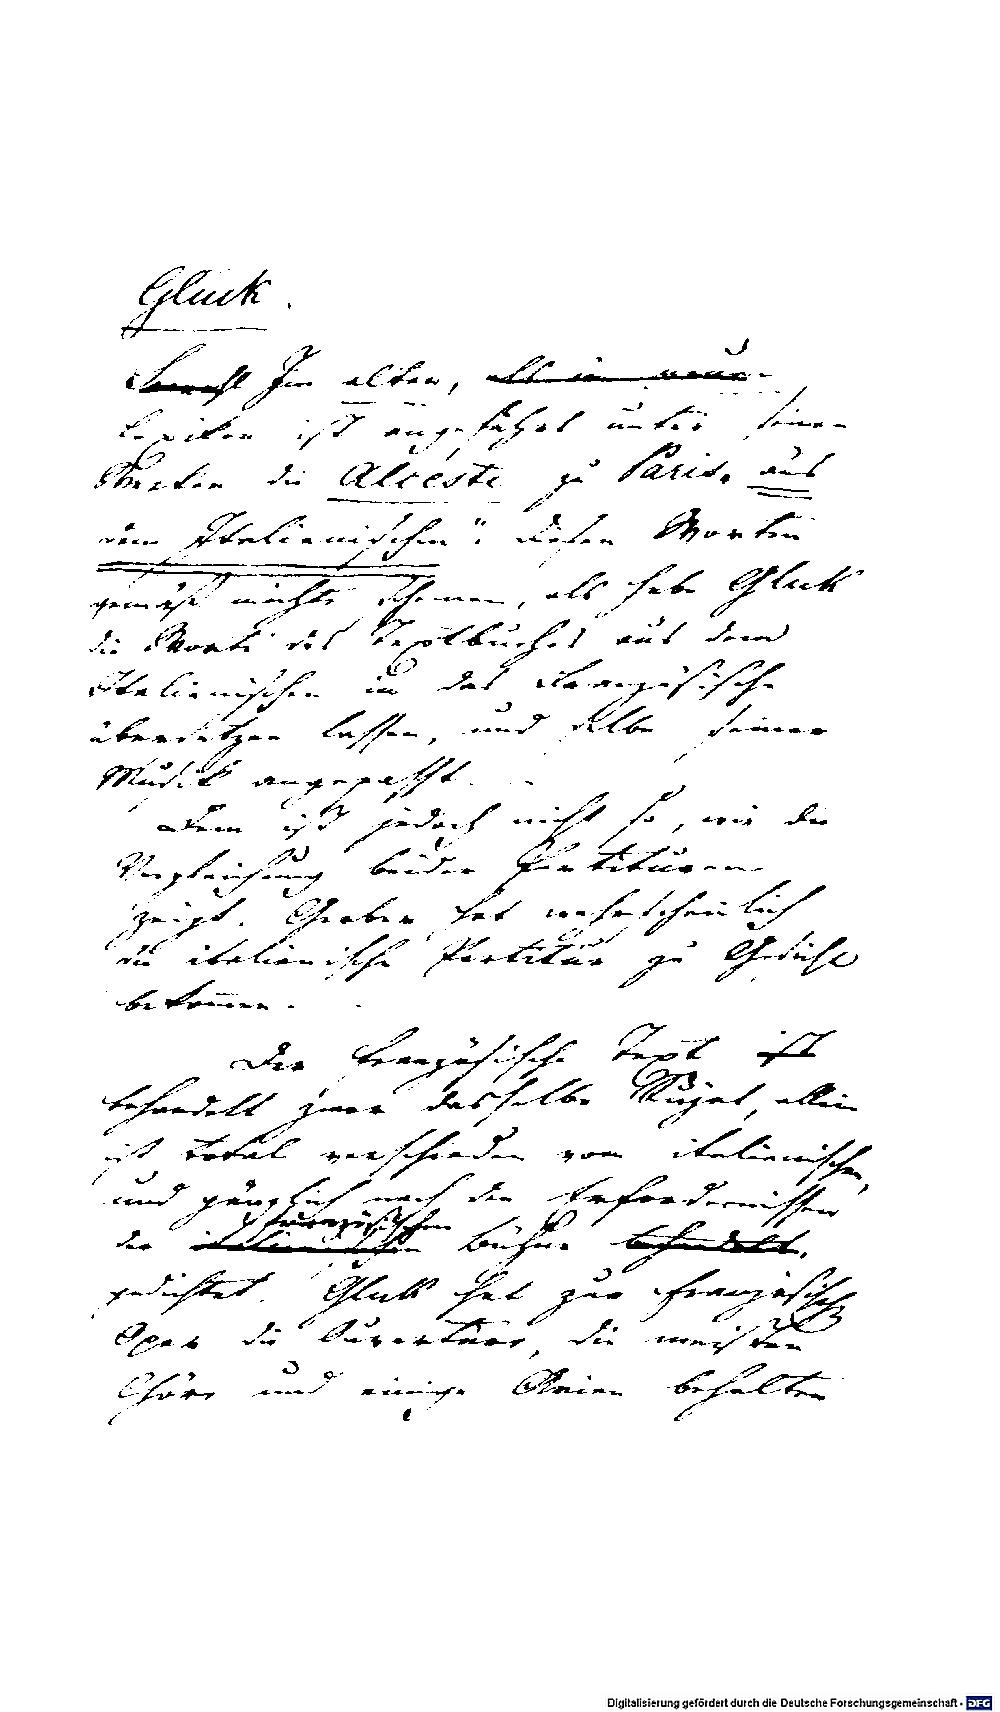 Gluck.
Im alten, als im neuen
Lexikon ist angeführt unter seinen
Werken die Alceste zu Paris, aus
dem Italienischen": diesen Worten
gemäß möchte scheinen, als habe Gluck
die Worte des Textbuches aus dem
Italienischen in das Französische
übersetzen lassen, und selbe seiner
Musik angepaßt.
Dem ist jedoch nicht so, wie die
Vergleichung beider Partituren
zeigt. Gerber hat wahrscheinlich
die italienische Partitur zu Gesicht
bekommen.
Der französische Text ist
behandelt zwar dasselbe Sujet, allein
ist total verschieden vom italienischen,
und gänzlich nach den Erfordernissen
französischen
der italienischen Bühne behandelt.
gedichtet. Gluck hat zur französisch
Oper die Ouverture, die meisten
Chöre und einige Arien behalten
Digitalisierung gefördert durch die Deutsche Forschungsgemeinschaft - DFG